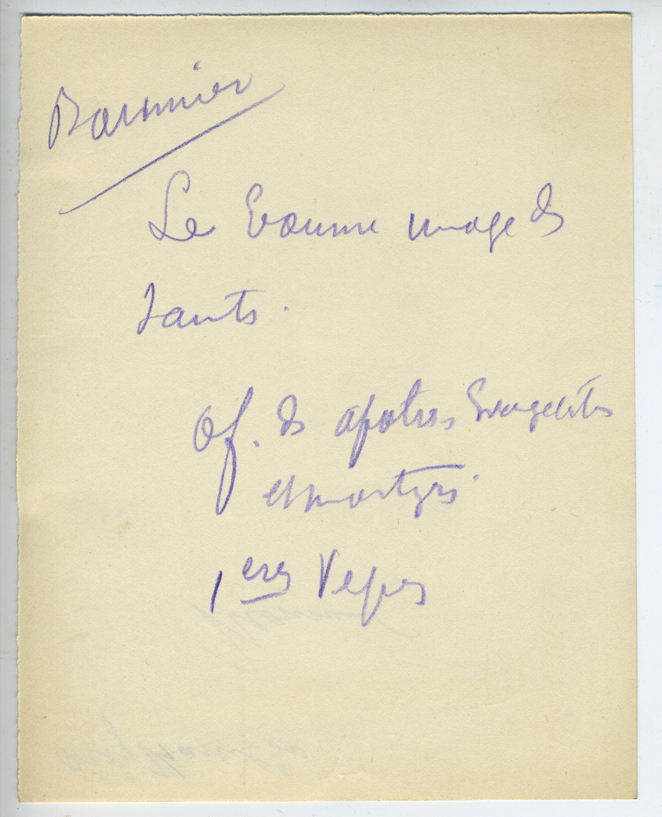 Baumier
Le Baume image ds
saints.
Of. ds apotres, Evangelistes
et martyrs.
1eres Vepres